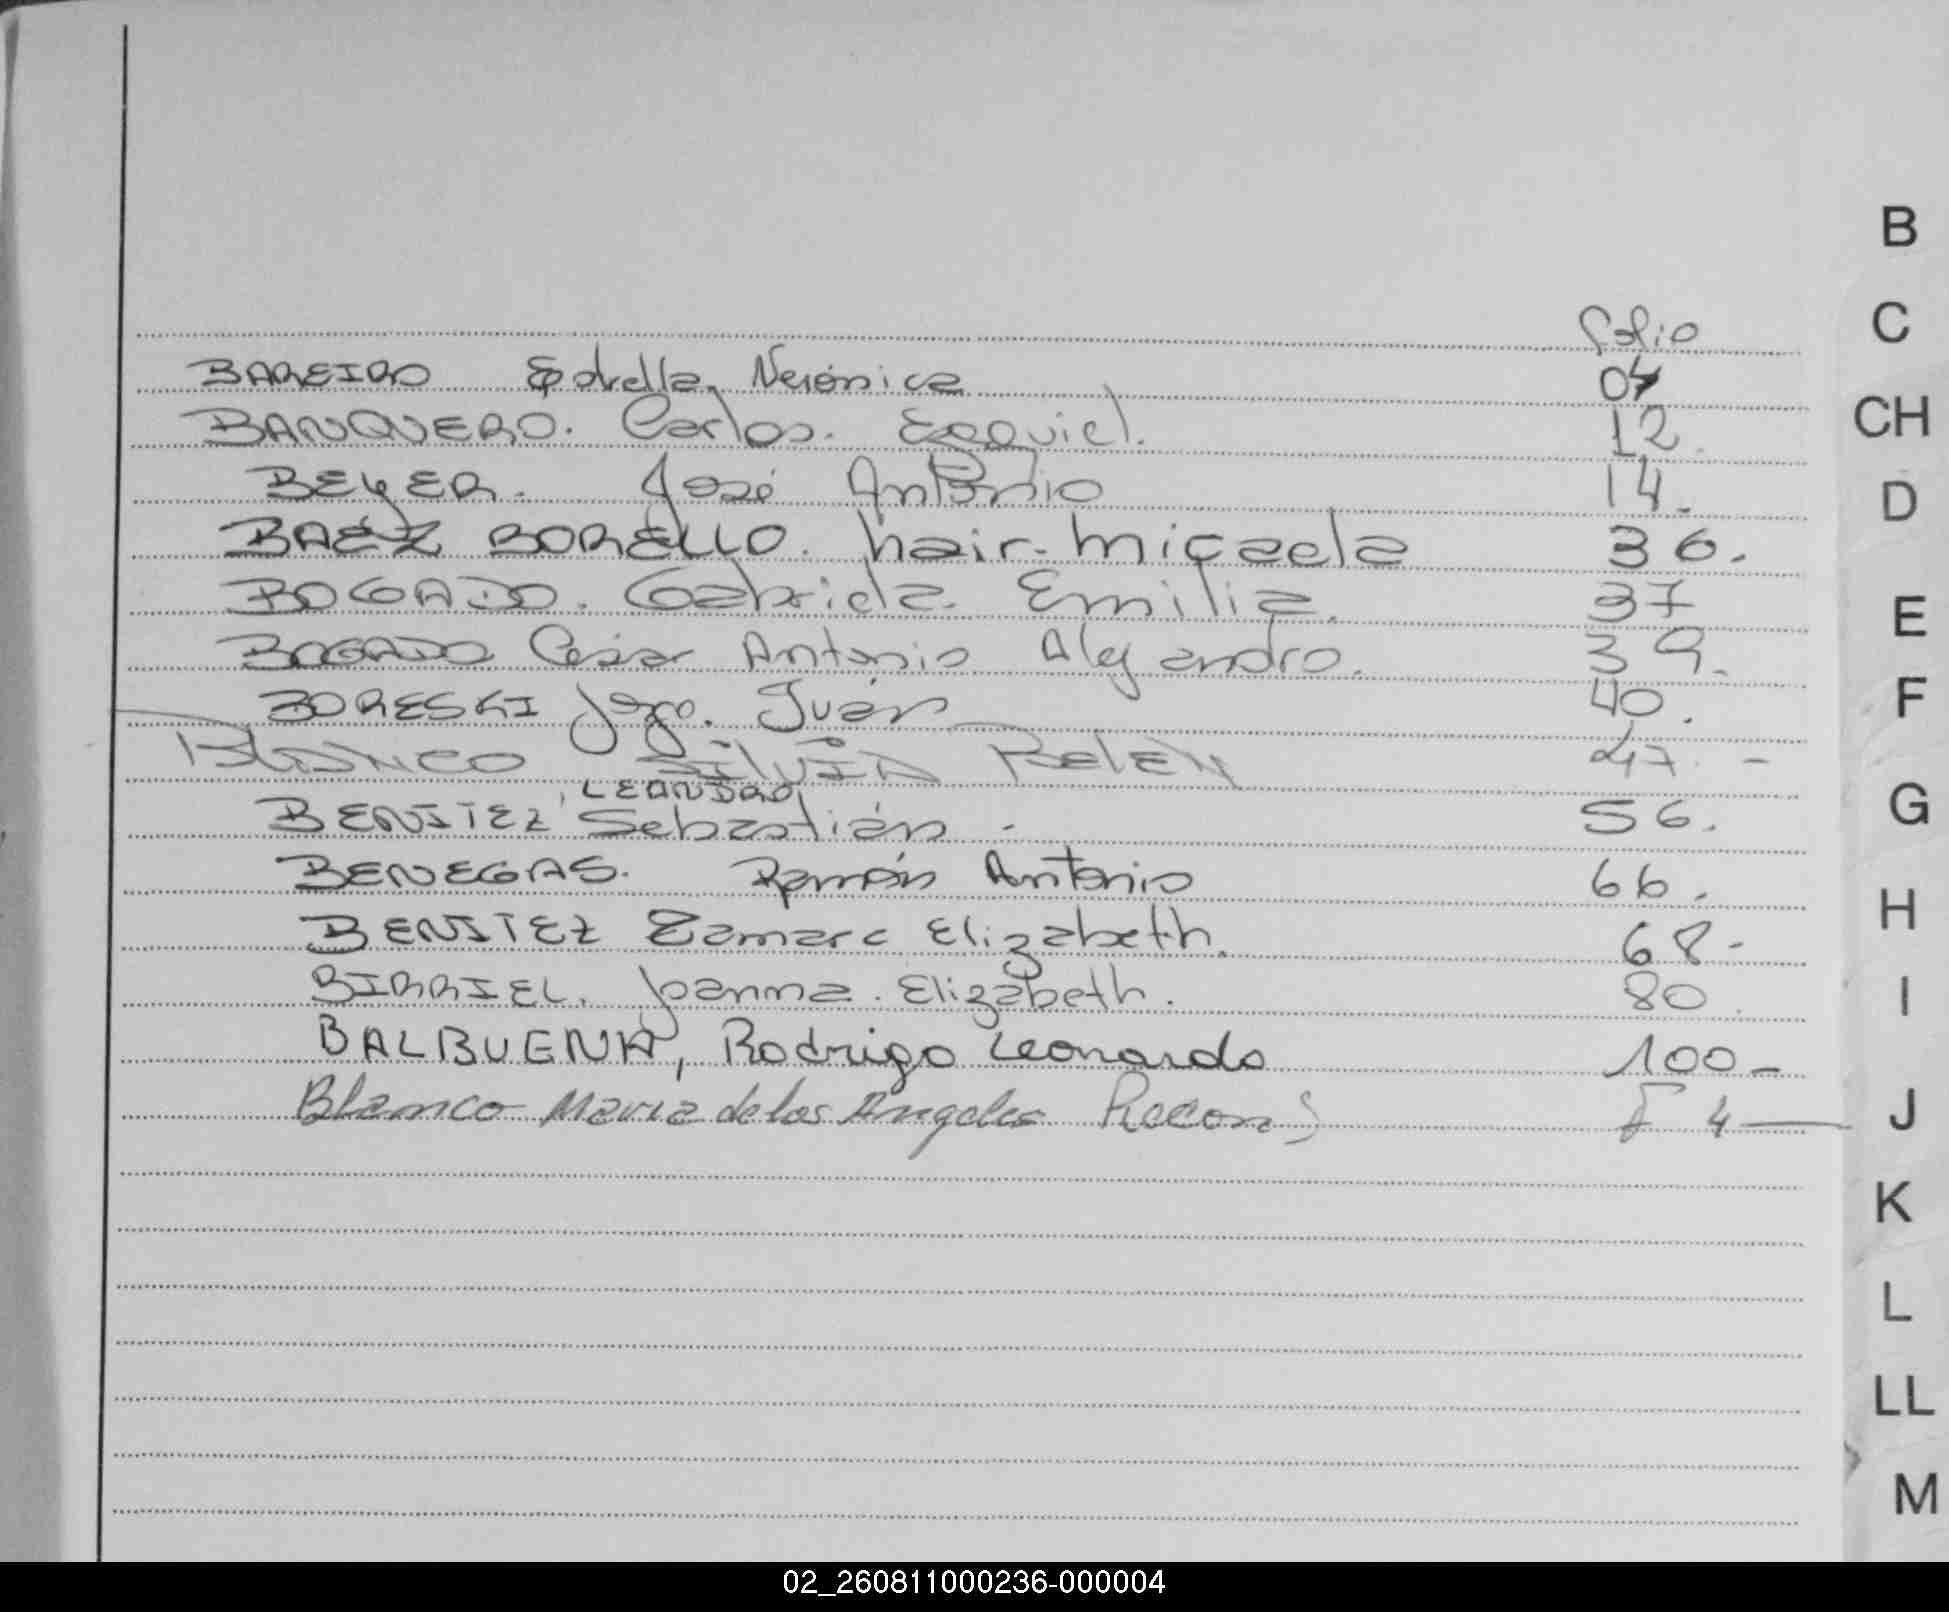 folio
BAREIRO Estrella Verónica 04
BANQUERO. Carlos. Ezequiel. 12.
BEYER. José Antonio 14.
BAÉZ BORELLO. hair. micaela 36.
BOGADO. Gabriela. Emilia. 37
BOGADO César Antonio Alejandro. 39.
BORESKI Jorge. Iván 40.
Blanco SilviA Belén 47. -
LEANDRO
BENITEZ, Sebastián - 56.
BENEGAS. Ramón Antonio 66.
BENITEZ Elizabeth. 68-
BIRRIEL. Joanna. Elizabeth. 80.
BALBUENA, Rodrigo Leonardo 100-
Blanco Maria de los Angeles Recon F 4
B
C
CH
D
E
F
G
H
I
J
K
L
LL
M
02_260811000236-000004